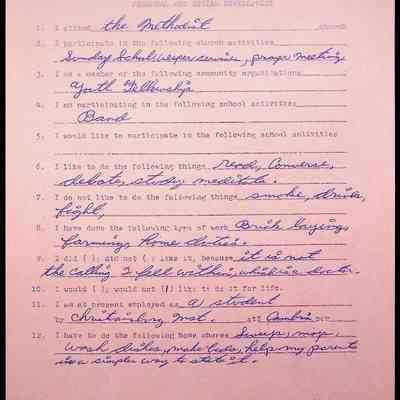 PERSONAL AND SOCIAL DEVELOPMENT
1. I attend the Methodist church
2. I participate in the following church activities
Sunday School, vesper service, prayer meeting
3. I am a member of the following community organizations
Youth Fellowship
4. I am participating in the following school activities
Band
5. I would like to participate in the following school activities
6. I like to do the following things read, Converse,
debate, study meditate.
7. I do not like to do the following things smoke, drink,
fight,
8. I have done the following type of work Brick laying,
farming, home duties.
9. I did ( ); did not ( ) like it, because it is not
the calling I fell within, which is a doctor.
10. I would ( ); would not (/) like to do it for life.
11. I am at present employed as a student
by Christiansburg Inst. at Cambria
12. I have to do the following home chores Sweep, mop,
wash dishes, make beds, help my parents
is a simple way to state it.